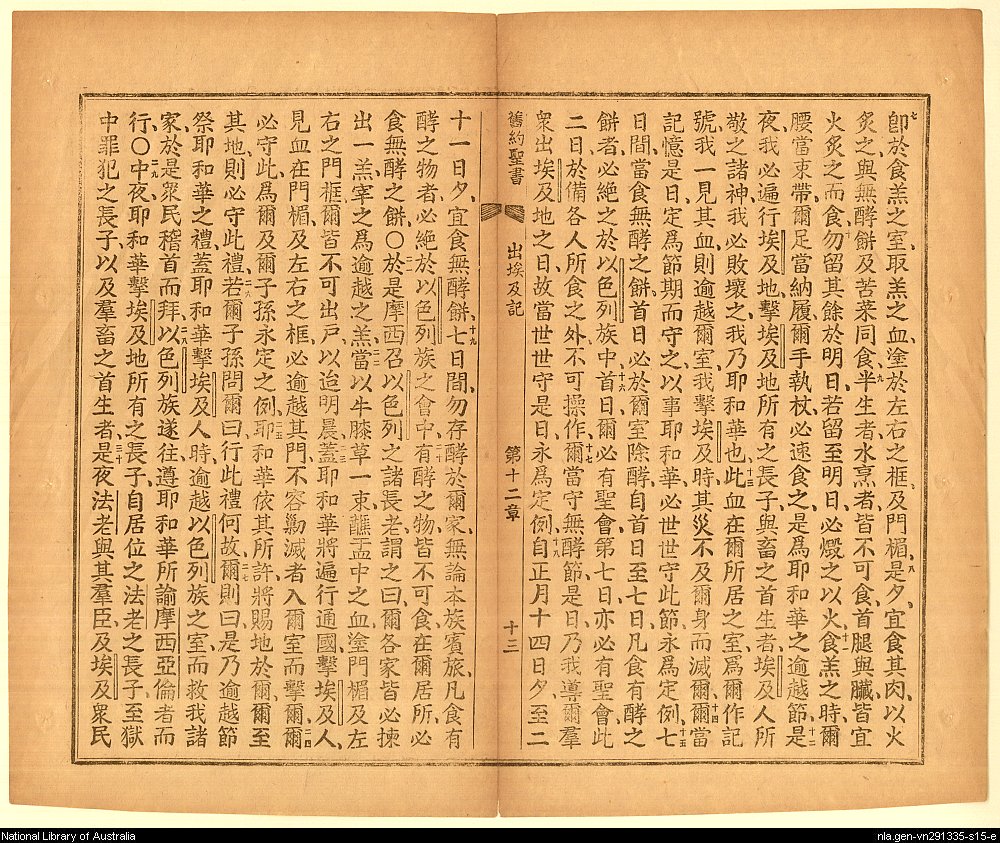 七卽於食羔之室、取羔之血、塗於左右之框、及門楣、八是夕、宜食其肉、以火
炙之、與無酵餅及苦菜同食、九半生者、水烹者、皆不可食、首腿與臟、皆宜
火炙之而食、十勿留其餘於明日、若留至明日、必燬之以火、十一食羔之時、爾
腰當束帶、爾足當納履、爾手執杖、必速食之、是爲耶和華之逾越節、十二是
夜、我必遍行埃及地、擊埃及地所有之長子、與畜之首生者、埃及人所
敬之諸神、我必敗壞之、我乃耶和華也、十三此血在爾所居之室、爲爾作記
號、我一見其血、則逾越爾室、我擊埃及時、其災不及爾身而滅爾、十四爾當
記憶是日、定爲節期而守之、以事耶和華、必世世守此節、永爲定例、十五七
日間、當食無酵之餅、首日必於爾室除酵、自首日至七日、凡食有酵之
餅者、必絕之於以色列族中、十六首日爾必有聖會、第七日亦必有聖會、此
二日、於備各人所食之外、不可操作、十七爾當守無酵節、是日乃我導爾羣
衆出埃及地之日、故當世世守是日、永爲定例、十八自正月十四日夕、至二
舊約聖書 出埃及記 第十二章 十三
十一日夕、宜食無酵餅、十九七日間、勿存酵於爾家、無論本族賓旅、凡食有
酵之物者、必絕於以色列族之會中、二十有酵之物、皆不可食、在爾居所、必
食無酵之餅、○二一於是摩西召以色列之諸長老、謂之曰、爾各家皆必揀
出一羔、宰之爲逾越之羔、二二當以牛膝草一束、蘸盂中之血、塗門楣及左
右之門框、爾皆不可出戶、以迨明晨、二三蓋耶和華將遍行通國、擊埃及人、
見血在門楣、及左右之框、必逾越其門、不容勦滅者入爾室而擊爾、二四爾
必守此、爲爾及爾子孫永定之例、二五耶和華依其所許、將賜地於爾、爾至
其地、則必守此禮、二六若爾子孫問爾曰、行此禮何故、二七爾則曰、是乃逾越節
祭耶和華之禮、蓋耶和華擊埃及人時、逾越以色列族之室、而救我諸
家、於是衆民稽首而拜、二八以色列族遂往、遵耶和華所諭摩西亞倫者而
行、○二九中夜、耶和華擊埃及地所有之長子、自居位之法老之長子、至獄
中罪犯之長子、以及羣畜之首生者、三十是夜、法老與其羣臣、及埃及衆民、
National Library of Australia
nla.gen-vn291335-s15-e